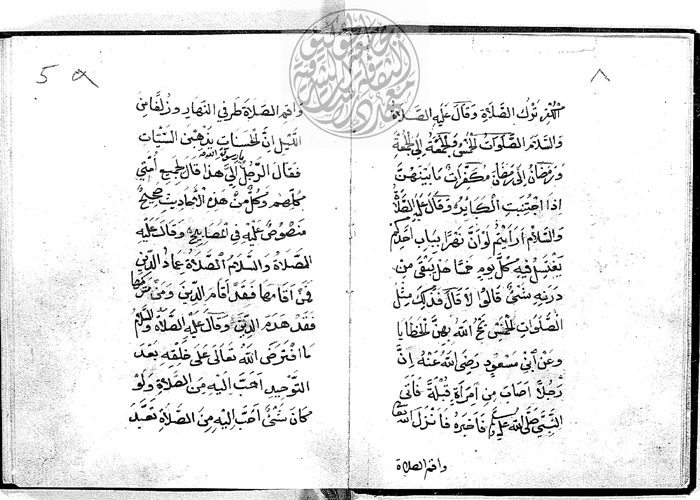 الكفر ترك الصلاة وقال عليه الصلاة
والسلام الصلوات الخمس والجمعة الى الجمعة
ورمضان الى رمضان مكفرات ما بينهن
اذا اجتنبت الكبائر وقال عليه الصلاة
والسلام ارايتم لو ان نهرا بباب احدكم
يغتسل فيه كل يوم خمسا هل يبقى من
درنه شئ قالوا لا قال فذلك مثل
الصلوات الخمس يمح الله بهن الخطايا
وعن ابن مسعود رضى الله عنه ان
رجلا اصاب من امراة قبلة فاتى
النبي صلى الله عليه وسلم فاخبره فانزل الله تعالى
واقم الصلاة
واقم الصلاة طرفي النهار وزلفا من
الليل ان الحسنات يذهبن السيئات
فقال الرجل يا رسول الله الي هذا قال لجميع امتي
كلهم وكل من هذه الاحاديث صحيح
منصوص عليه في المصابيح وقال عليه
الصلاة والسلام الصلاة عماد الدين
فمن اقامها فقد اقام الدين ومن تركها
فقد هدم الدين وقال عليه الصلاة والسلام
ما افترض الله تعالى على خلقه بعد
التوحيد احب اليه من الصلاة ولو
كان شئ احب اليه من الصلاة تعبد